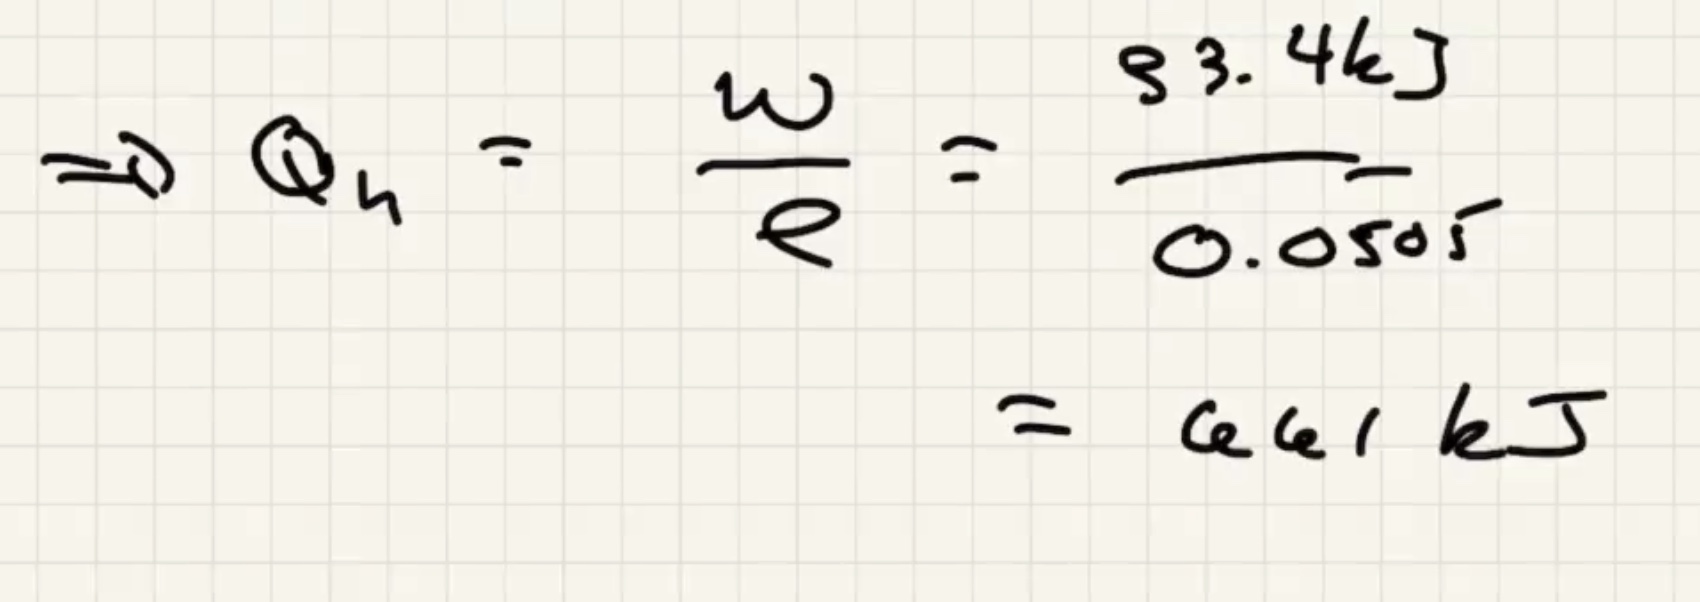 ⇒ Q_h = W/e = 33.4kJ/0.0505
= 661 kJ